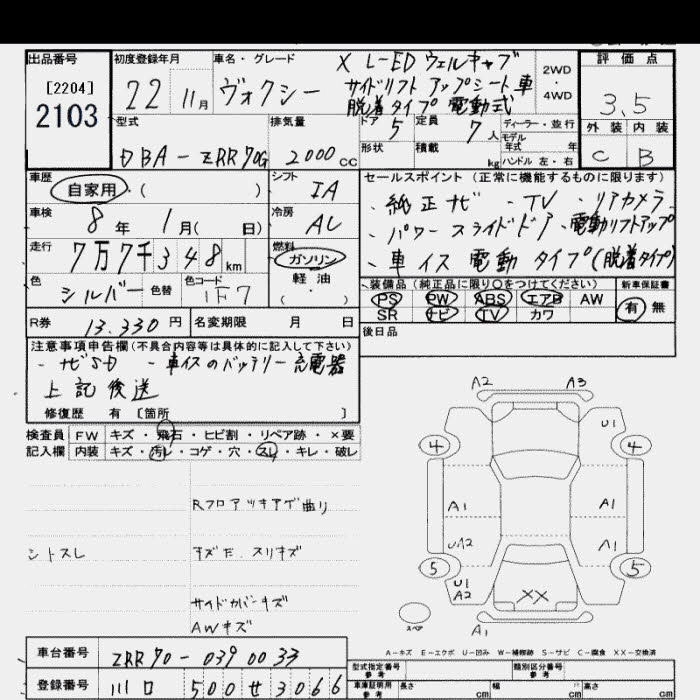 出品番号 初度登録年月 車名・グレード X L-ED ウェルキャブ 評価点
[2204]
2103
22 11月 ヴォクシー サイドリフト アップシート車 2WD 4WD
脱着タイプ 電動式
3.5
型式 排気量 ドア 5 定員 7人 ディーラー・並行
形状 積載 kg モデル年式 年 ハンドル 左・右
外装 内装
DBA-ZRR70G 2000cc
C B
車歴 自家用・( ) シフト IA
セールスポイント(正常に機能するものに限ります)
・純正ナビ ・TV ・リアカメラ
車検 8年 1月( 日) 冷房 AC
・パワースライドドア ・電動リフトアップ
走行 7万7千348km 燃料 ガソリン・軽油・( )
・車イス電動タイプ(脱着タイプ)
色 シルバー 色替 色コード 1F7
装備品(純正品に限り○をつけてください) 新車保証書
PS PW ABS エアB AW 有 無
SR ナビ TV カワ
R券 13.330円 名変期限 月 日
後日品
注意事項申告欄(不具合内容等は具体的に記入して下さい)
・ナビSD ・車イスのバッテリー充電器
上記後送
修復歴 有 [箇所 ]
検査員 FW キズ・飛石・ヒビ割・リペア跡・×要
記入欄 内装 キズ・汚レ・コゲ・穴・スレ・キレ・破レ
A2 A3
U1
4 4
Rフロアツキアゲ曲り
A1 A1
シトスレ
キズE.スリキズ
UA2 A1
5 5
U1
A2
XX
サイドカバーキズ
AWキズ
スペア
A1
A-キズ E-エクボ U-凹み W-補修跡 S-サビ C-腐食 XX-交換済
車台番号 ZRR70-0390033
型式指定番号 参考 類別区分番号 参考
登録番号 川口 500 せ 3066
車庫証明用 参考 長さ cm 幅 cm 高さ cm